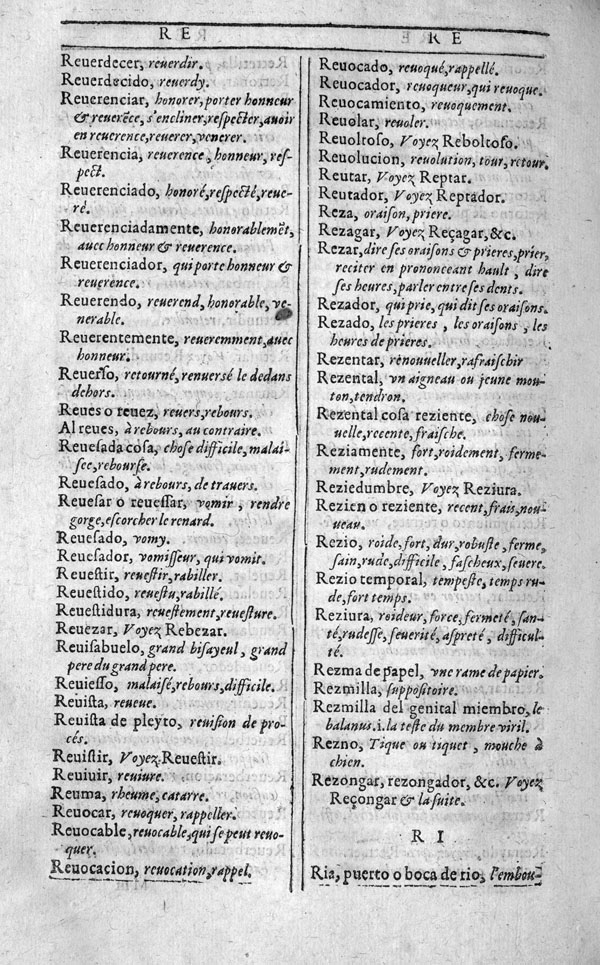 RE
Reuerdecer, reuerdir.
Reuerdecido, reuerdy.
Reuerenciar, honorer, porter honneur
& reuerẽce, s'encliner, respecter, auoir
en reuerence, reuerer, venerer.
Reuerencia, reuerence, honneur, reſ-
pect.
Reuerenciado, honoré, reſpecté, reue-
ré.
Reuerenciadamente, honorablemẽt,
auec honneur & reuerence.
Reuerenciador, qui porte honneur &
reuerence.
Reuerendo, reuerend, honorable, ve-
nerable.
Reuerentemente, reueremment, auec
honneur.
Reuerſo, retourné, renuersé le dedans
dehors.
Reues o reuez, reuers, rebours.
Al reues, à rebours, au contraire.
Reueſada coſa, choſe difficile, malai-
ſee, rebourſe.
Reueſado, à rebours, de trauers.
Reueſar o reueſſar, vomir, rendre
gorge, eſcorcher le renard.
Reueſado, vomy.
Reueſador, vomiſſeur, qui vomit.
Reueſtir, reueſtir, rabiller.
Reueſtido, reueſtu, rabillé.
Reueſtidura, reueſtement, reueſture.
Reuezar, Voyez Rebezar.
Reuiſabuelo, grand biſayeul, grand
pere du grand pere.
Reuieſſo, malaiſé, rebours, difficile.
Reuiſta, reueue.
Reuiſta de pleyto, reuiſion de pro-
cés.
Reuiſtir, Voyez Reueſtir.
Reuiuir, reuiure.
Reuma, rheume, catarre.
Reuocar, reuoquer, rappeller.
Reuocable, reuocable, qui ſe peut reuo-
quer.
Reuocacion, reuocation, rappel.
RE
Reuocado, reuoqué, rappellé.
Reuocador, reuoqueur, qui reuoque.
Reuocamiento, reuoquement.
Reuolar, reuoler.
Reuoltoſo, Voyez Reboltoſo.
Reuolucion, reuolution, tour, retour.
Reutar, Voyez Reptar.
Reutador, Voyez Reptador.
Reza, oraiſon, priere.
Rezagar, Voyez Reçagar, &c.
Rezar, dire ſes oraiſons & prieres, prier,
reciter en prononceant hault, dire
ſes heures, parler entre ſes dents.
Rezador, qui prie, qui dit ſes oraiſons.
Rezado, les prieres, les oraiſons, les
heures de prieres.
Rezentar, renouueller, rafraiſchir
Rezental, vn aigneau ou jeune mou-
ton, tendron.
Rezental coſa reziente, choſe nou-
uelle, recente, fraiſche.
Reziamente, fort, roidement, ferme-
ment, rudement.
Reziedumbre, Voyez Reziura.
Rezien o reziente, recent, frais, nou-
ueau.
Rezio, roide, fort, dur, robuſte, ferme,
ſain, rude, difficile, faſcheux, ſeuere.
Rezio temporal, tempeſte, temps ru-
de, fort temps.
Reziura, roideur, force, fermeté, ſan-
té, rudeſſe, ſeuerité, aſpreté, difficul-
té.
Rezma de papel, vne rame de papier.
Rezmilla, ſuppoſitoire.
Rezmilla del genital miembro, le
balanus .i. la teſte du membre viril.
Rezno, Tique ou tiquet, mouche à
chien.
Rezongar, rezongador, &c. Voyez
Reçongar & la ſuite.
RI
Ria, puerto o boca de rio, l'embou-